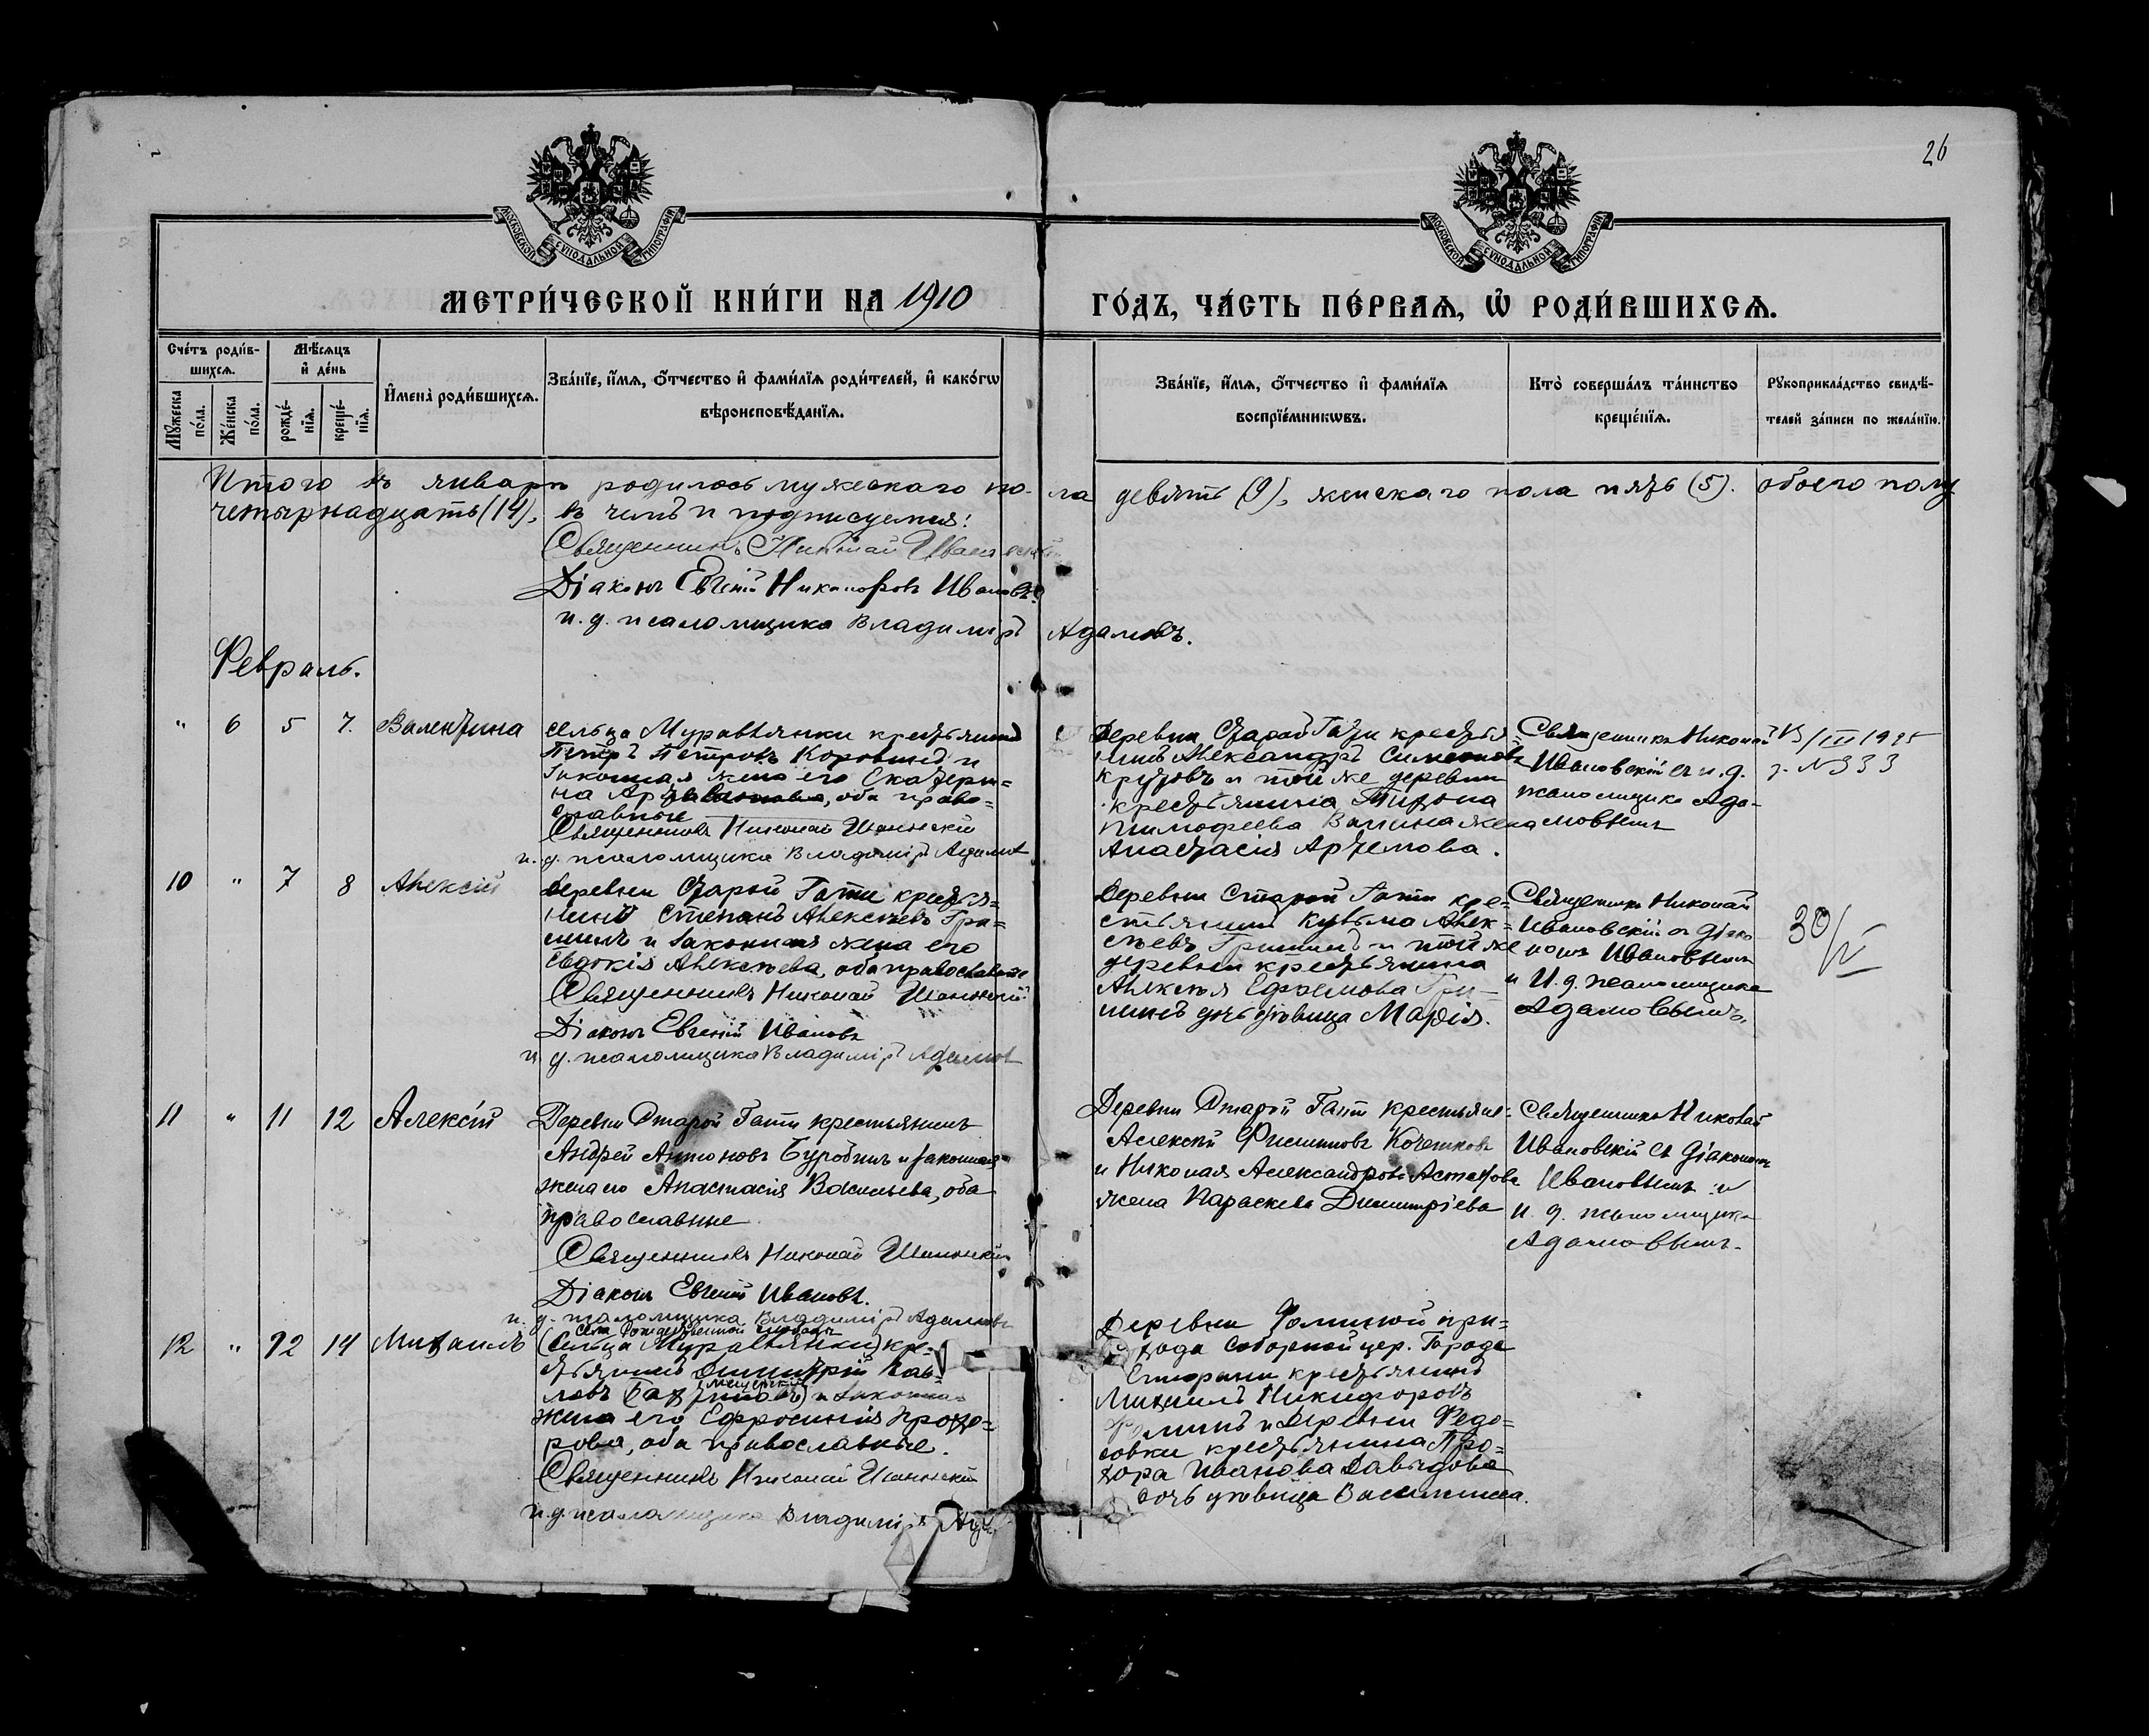 26
МОСКОВСКОЙ СѴНОДАЛЬНОЙ ТИПОГРАФІИ
МОСКОВСКОЙ СѴНОДАЛЬНОЙ ТИПОГРАФІИ
МЕТРИ́ЧЕСКОЙ КНИ́ГИ НА 1910 ГО́ДЪ, ЧА́СТЬ ПЕ́РВАѦ, Ѡ҆ РОДИ́ВШИХСѦ.
Сче́тъ роди́в-
шихсѧ.
Мѣ́сѧцъ
и҆ де́нь
Мꙋ́жеска
по́ла.
Же́нска
по́ла.
рожде́-
нїѧ.
креще́-
нїѧ.
И҆мена̀ роди́вшихсѧ.
Зва́нїе, и҆́мѧ, ѻ҆́тчество и҆ фами́лїѧ роди́телей, и҆ како́гѡ
вѣроисповѣ́данїѧ.
Зва́нїе, и҆́мѧ, ѻ҆́тчество и҆ фами́лїѧ
воспрїе́мникѡвъ.
Кто̀ соверша́лъ та́инство
креще́нїѧ.
Рꙋкоприкла́дство свидѣ́-
телей за́писи по жела́нїю.
Итого въ январѣ родилось мужескаго по-ла девять (9), женскаго пола пять (5). обоего полу
четырнадцать (14), въ чемъ и подписуемся:
Священникъ Николай Ивановскій
Діаконъ Евгеній Никаноровъ Ивановъ
и. д. псаломщика Владиміръ Адамовъ.
Февраль.
" 6 5 7. Валентина
сельца Муравлянки крестьянинъ
Петръ Петровъ Коровинъ и
законная жена его Екатери=
на Ар , оба право=
славные
Священникъ Николай Ивановскій
и. д. псаломщика Владиміръ Адамовъ
Деревни Старой Гати крестья=
нинъ Александръ Симеоновъ
Крутовъ и той же деревни
крестьянина Тихона
Тимофеева Ванина жена
Анастасія Артемова.
Священникъ Николай
Ивановскій съ и. д.
псаломщика Ада-
мовымъ
/III 1925
г. N 333
10 " 7 8 Алексій
Деревни Старой Гати крестья=
нинъ Стефанъ Алексѣевъ Гри=
шинъ и законная жена его
Евдокія Алексѣева, оба православные
Священникъ Николай Ивановскій
Діаконъ Евгеній Ивановъ
и. д. псаломщика Владиміръ Адамовъ
Деревни Старой Гати кре=
стьянинъ Кузьма Алек=
сѣевъ Гришинъ и той же
деревни крестьянина
Алексѣя Ефремова Гри-
шина дочь дѣвица Марія.
Священникъ Николай
Ивановскій съ діако-
номъ Ивановымъ
и И. д. псаломщика
Адамовымъ.
30/IV
11 " 11 12 Алексій
Деревни Старой Гати крестьянинъ
Андрей Антоновъ Буробинъ и законная
жена его Анастасія Васильева, оба
православные
Священникъ Николай Ивановскій
Діаконъ Евгеній Ивановъ.
и. д. псаломщика Владиміръ Адамовъ
Деревни Старой Гати крестьяне:
Алексѣй Филипповъ Кочетковъ
и Николая Александрова Астахова
жена Параскева Димитріева
Священникъ Николай
Ивановскій съ діакономъ
Ивановымъ и
и. д. псаломщика
Адамовымъ.
12 " 12 14 Михаилъ
(сельца Муравлянки) кре-
стьянинъ Димитрій Пав-
ловъ и законная
жена его Ефросинія Прохо=
рова, оба православные.
Священникъ Николай Ивановскій
и. д. псаломщика Владиміръ
Деревни Фоминой при=
хода Соборной цер. Города
Епифани крестьянинъ
Михаилъ Никифоровъ
и Деревни Федо=
совки крестьянина Про=
хора Иванова Давыдова
дочь дѣвица Василисса.